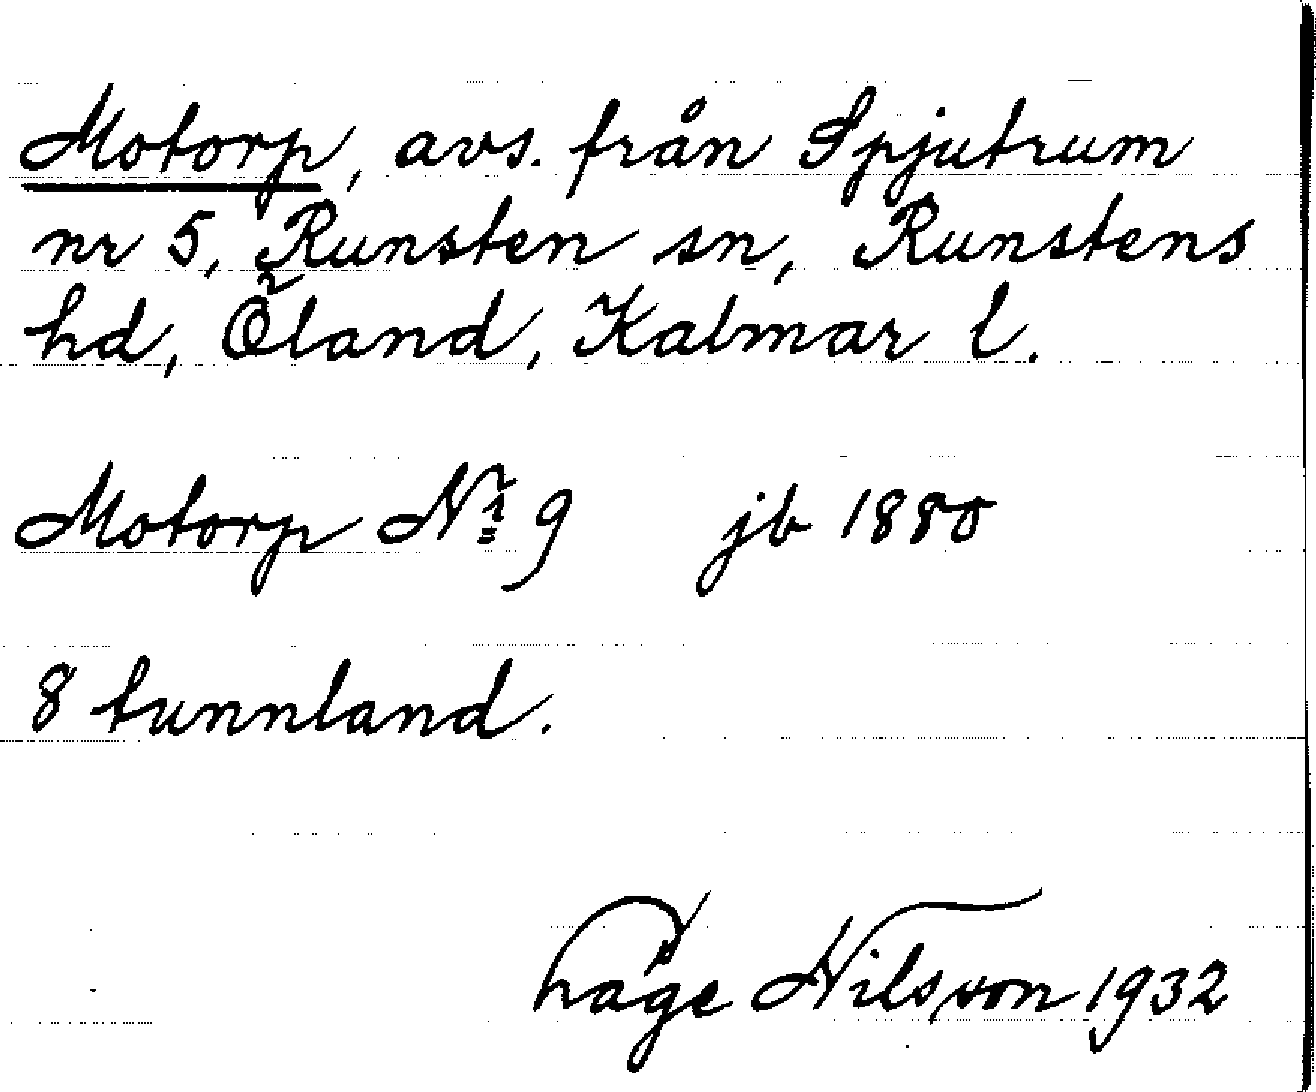 Motorp, avs. från Spjutrum
nr 5, Runsten sn, Runstens
hd, Öland, Kalmar l.
Motorp Nr 9 jb 1880
8 tunnland.
Nilsson 1932